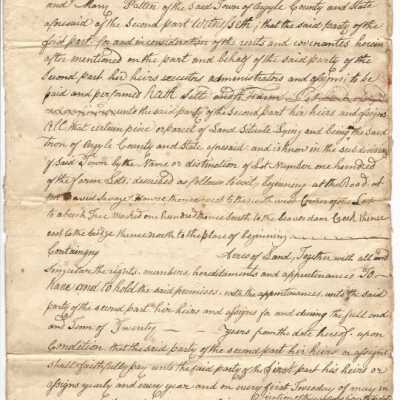 and Mary Patten of the said Town of Argyle County and State
aforesaid of the second part Witnesseth, that the said party of the
first part for and in consideration of the rents and covenants herein
after mentioned on the part and behalf of the said party of the
second part her heirs executors administrators and assigns to be
paid and performed Hath Sett and to Farm
unto the said party of the second part her heirs and assigns
All that certain piece or parcel of Land Situate Lying and being the said
town of Argyle County and State aforesaid and is known in the subdivision
of said Town by the Name or distinction of Lot Number one hundred
of the farm Lots; described as follows to wit, begining at the Road at
David Savage House thence west to the
to a beach Tree Marked one hundred thence south to the beaverdam Creek thence
east to the thence north to the place of beginning
Containing Acres of Land, Together with all and
Singular the rights, members hereditements and appurtenances To
have and to hold the said premises, with the appurtenances, unto the said
party of the second part her heirs and assigns for and during the full end
and Term of Twenty years from the date hereof upon
Condition, that the said party of the second part her heirs or assigns
shall faithfully pay unto the said party of the first part his heirs or
assigns yearly and every year and on every first Tuesday of may in